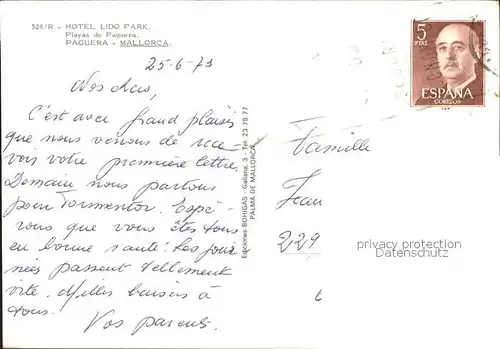 528/R - HOTEL LIDO PARK.
Playas de Paguera.
PAGUERA - MALLORCA.
25-6-73
Mes chers,
C'est avec Grand plaisir
que nous venons de rece-
voir votre première lettre.
Demain nous partons
pour Formentor. Espé-
rons que vous êtes tous
en bonne santé. Les jour
nées passent tellement
vite. Milles baisers à
tous.
Vos parents.
Ediciones BOHIGAS - Galiana, 3 - Tel. 23 78 77
PALMA DE MALLORCA
5
PTAS
ESPAÑA
CORREOS
Famille
Jean
2,29
privacy protection
Datenschutz